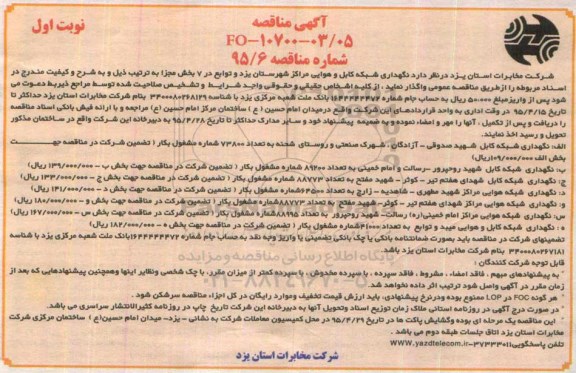 آگهی مناقصه
نوبت اول
FO-10700-03/05
شماره مناقصه 95/6
شرکت مخابرات استان یزد درنظر دارد نگهداری شبکه کابل و هوایی مراکز شهرستان یزد و توابع در 7 بخش مجزا به ترتیب ذیل و به شرح و کیفیت مندرج در
اسناد مربوطه را ازطریق مناقصه عمومی واگذار نماید، از کلیه اشخاص حقیقی و حقوقی واجد شرایط و تشخیص صلاحیت شده توسط مراجع ذیربط دعوت می
شود پس از واریزمبلغ 50.000 ریال به حساب جام شماره 1644444472 بانک ملت شعبه مرکزی یزد با شناسه بنام شرکت مخابرات استان یزد حداکثر تا
تاریخ 95/4/15 در وقت اداری به واحد قراردادهای این شرکت واقع درمیدان امام حسین (ع) ساختمان مرکز امام حسین (ع) مراجعه و با ارائه فیش بانکی اسناد مناقصه
را دریافت و پس از تکمیل، آنها را مهر و امضاء نموده و به ضمیمه پیشنهاد خود و سایر مدارک حداکثر تا تاریخ 95/4/28 به دبیرخانه این شرکت واقع در ساختمان مذکور
تحویل و رسید اخذ نمایند.
الف: نگهداری شبکه کابل شهید صدوقی - آزادگان، شهرک صنعتی و روستای شحنه به تعداد 73800 شماره مشغول بکار (تضمین شرکت در مناقصه جهت
بخش الف 109/000/000ریال)
ب: نگهداری شبکه کابل شهید روحپرور -رسالت و امام خمینی به تعداد 89200 شماره مشغول بکار (تضمین شرکت در مناقصه جهت بخش ب - 139/000/000 ریال)
ج: نگهداری شبکه کابل شهدای هفتم تیر - کوثر - شهید مفتح به تعداد 88773 شماره مشغول بکار (تضمین شرکت در مناقصه جهت بخش ج - 133/000/000 ریال)
د: نگهداری شبکه هوایی مراکز شهید مطهری - شاهدیه - زارچ به تعداد 64500شماره مشغول بکار (تضمین شرکت در مناقصه جهت بخش د - 141/000/000 ریال)
و: نگهداری شبکه هوایی مراکز شهدای هفتم تیر - کوثر- شهید مفتح به تعداد88773 شماره مشغول بکار (تضمین شرکت در مناقصه جهت بخش و - 180/000/000 ریال)
س: نگهداری شبکه هوایی مراکز امام خمینی(ره) رسالت- شهید روحپرور به تعداد 88995شماره مشغول بکار (تضمین شرکت در مناقصه جهت بخش س - 167/000/000 ریال)
ه: نگهداری شبکه کابل و هوایی میبد و توابع به تعداد 31000شماره مشغول بکار (تضمین شرکت در مناقصه جهت بخش ه - 182/000/000 ریال)
تضمینهای شرکت در مناقصه باید بصورت ضمانتنامه بانکی یا چک بانکی تضمینی یا واریز وجه نقد به حساب جام شماره 1644444472بانک ملت شعبه مرکزی یزد با شناسه
بنام شرکت مخابرات استان یزد باشد.
قابل توجه شرکت کنندگان:
- به پیشنهادهای مبهم، فاقد امضاء، مشروط، فاقد سپرده، با سپرده مخدوش، با سپرده کمتر از میزان مقرر، با چک شخصی ونظایر اینها وهمچنین پیشنهادهایی که بعد از
زمان مقرر در آگهی واصل شود ترتیب اثر داده نخواهد شد.
* هر گونه FOC در LOP ممنوع بوده ودرنرخ پیشنهادی، باید ارزش قیمت تخفیف وموارد رایگان در کل اجزاء مناقصه سرشکن شود.
- در صورت درج آگهی در روزنامه استانی ملاک زمان توزیع اسناد وتحویل آنها به دبیرخانه این شرکت تاریخ چاپ در روزنامه کثیرالانتشار سراسری می باشد.
* این مناقصه یک مرحله ای بوده وگشایش پاکت ها در تاریخ 95/4/29 در محل کمیسیون معاملات شرکت به نشانی - یزد- میدان امام حسین(ع) ساختمان مرکزی شرکت
مخابرات استان یزد اتاق جلسات طبقه دوم می باشد.
تلفن پاسخگویی37233011-www.yazdtelecom.ir
شرکت مخابرات استان یزد
پایگاه اطلاع رسانی مناقصه و مزایده